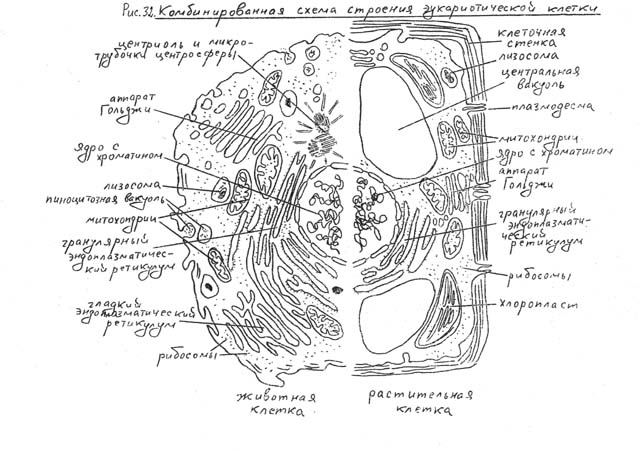 Рис. 32. Комбинированная схема строения эукариотической клетки
центриоль и микро-
трубочки центросферы
аппарат
Гольджи
ядро с
хроматином
лизосома
пиноцитозная вакуоль
митохондрии
гранулярный
эндоплазматичес-
кий ретикулум
гладкий
эндоплазматический
ретикулум
рибосомы
животная
клетка
клеточная
стенка
лизосома
центральная
вакуоль
плазмодесма
митохондрии
ядро с хроматином
аппарат
Гольджи
гранулярный
эндоплазмати-
ческий
ретикулум
рибосомы
хлоропласт
растительная
клетка